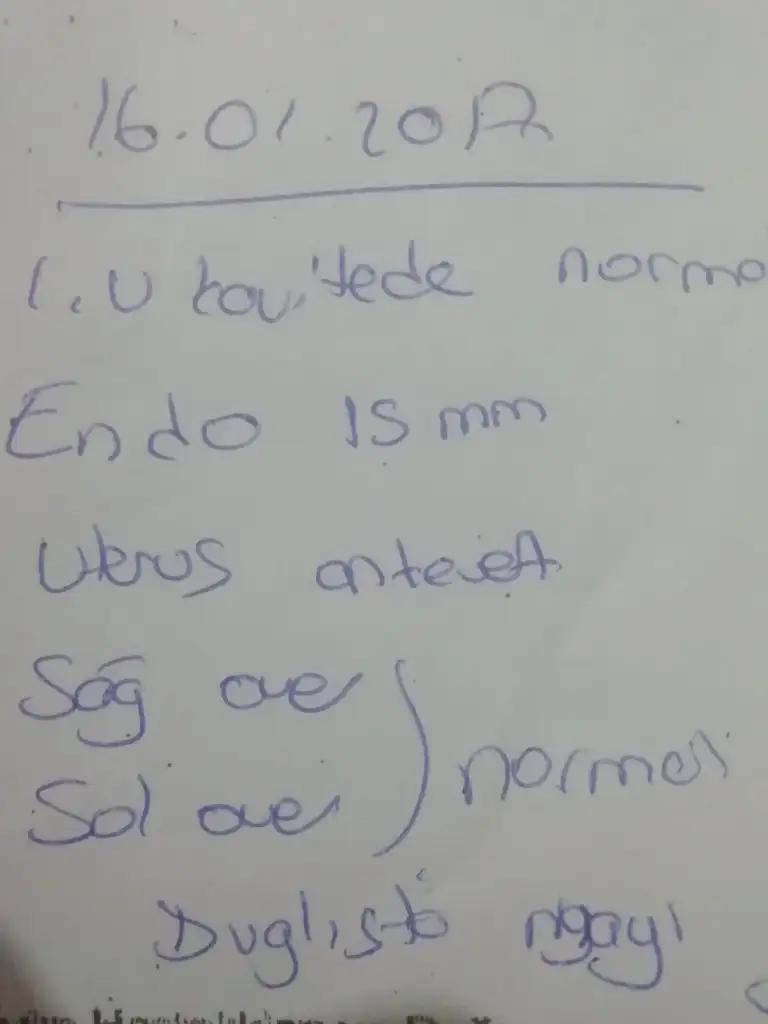 16.01.2017
I.U kavitede norma
Endo 15 mm
Uterus antevert
Sağ over
Sol over
normal
Duglasta